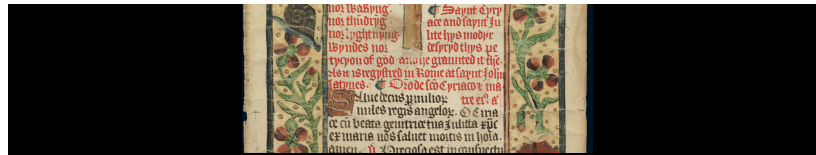 nor wakyng. ¶ Saynt Cyry
nor thūdryg ace and saynt Ju
nor lyghtnyng lite hys modyr
wyndes nor desyryd thys pe
tycyon of god and he graunted it thē.
As it is regystred in Rome at saynt John
latynes. ¶ Orōde scō Cyriaco ⁊ ma
Salue decus p̄milior tre ei⁹. a͠
miles regis angelor. O Ciria
ce cū beata genitrice tua Julitta xp̄e
ex maria nos saluet mortis in hora.
amen. v̄ Preciosa est in conspectu